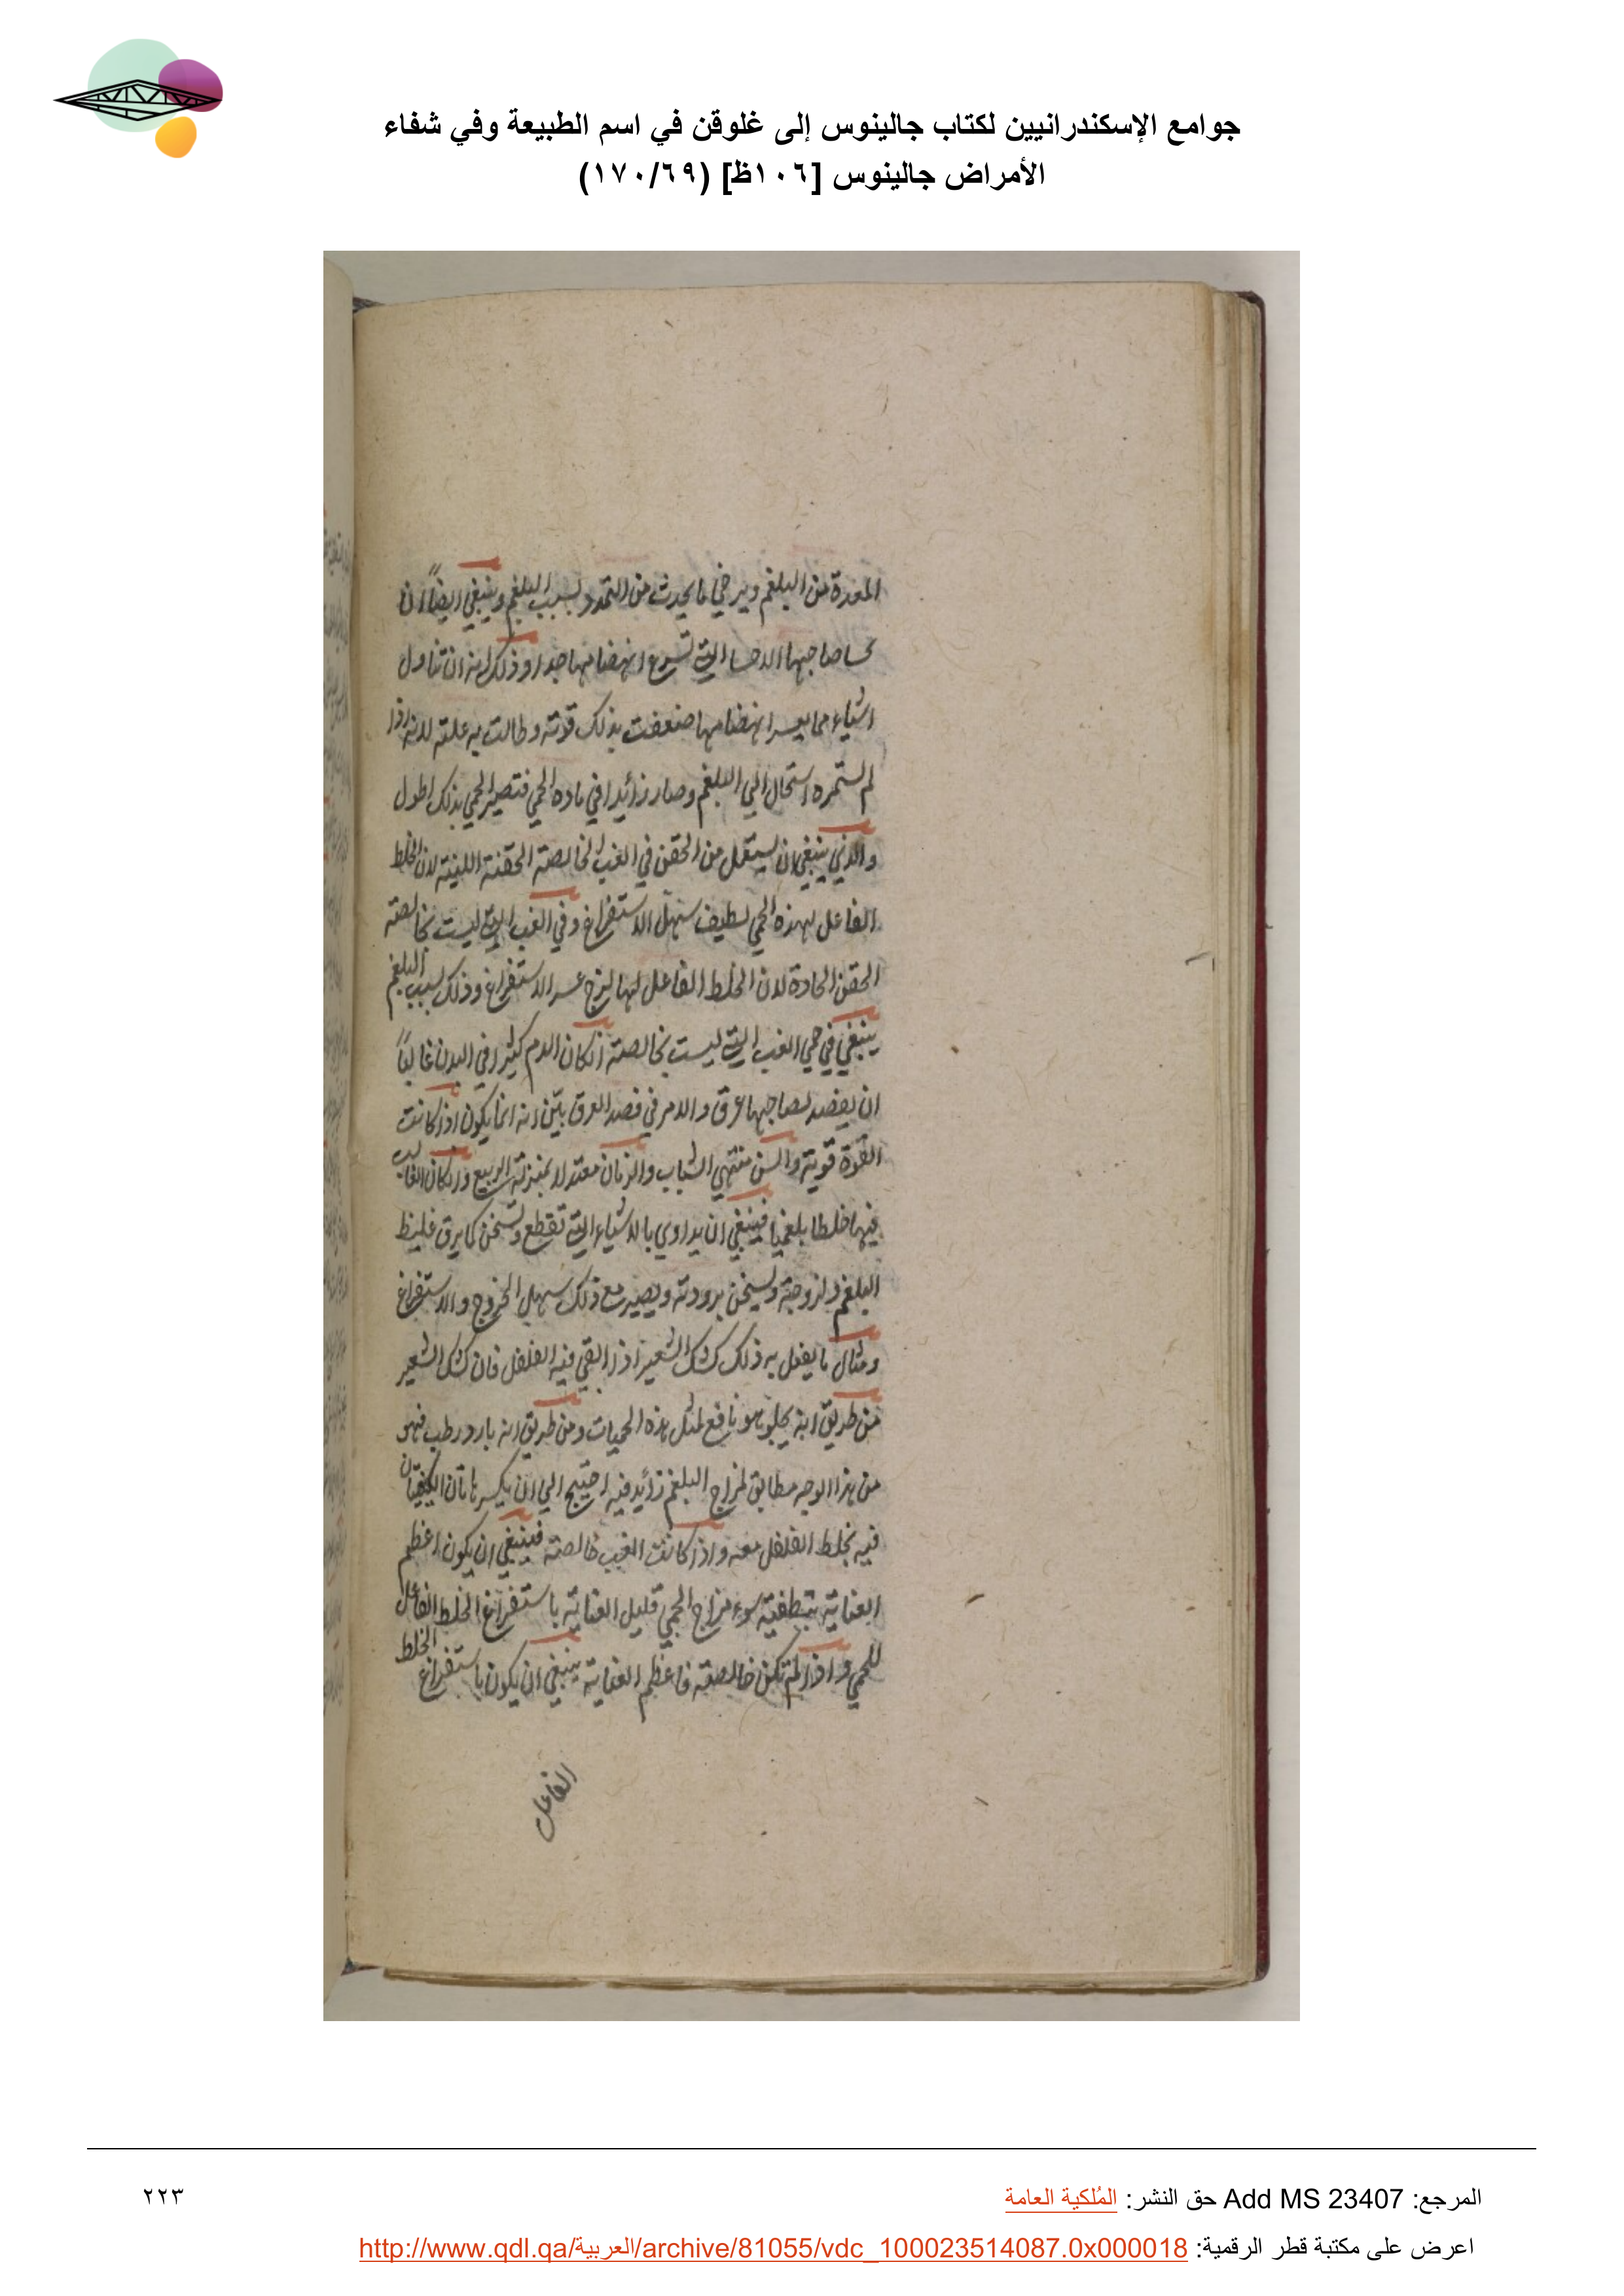 جوامع الإسكندرانيين لكتاب جالينوس إلى غلوقن في اسم الطبيعة وفي شفاء
الأمراض جالينوس [١٠٦ظ] (١٧٠/٦٩)
المعدة من البلغم ويرخي ما يحدث من التمدد بسبب البلغم وينبغي ايضاً ان
صاحبها الاحسا التي تسرع انهضامها جدا وذلك انه ان تناول
اشياء مما يعسر انهضامها ضعفت بذلك قوته وطالت به علته لانه اذا
لم يستمره استحال الي البلغم وصار زائدا في ماده الحمي فتصير الحمي بذلك اطول
والذي ينبغي ان يستعمل من الحقن في الغب الخالصة الحقنة اللينة لان الخلط
الفاعل لهذه الحمي لطيف سهل الاستفراغ وفي الغب التي ليست بخالصة
الحقن الحادة لان الخلط الفاعل لها لزج عسر الاستفراغ وذلك بسبب البلغم
ينبغي في حمي الغب التي ليست بخالصة ان كان الدم كثيرا في البدن غالباً
ان يفصد لصاحبها عرق والامر في فصد العرق بيّن انه انما يكون اذا كانت
القوة قوية والسن منتهي الشباب والزمان معتدلا بمنزلة الربيع وان كان الغالب
فيها خلطا بلغميا فينبغي ان يداوي بالاشياء التي تقطع وتسخن كما يرق غليظ
البلغم ولزوجته ويسخن برودته ويصير مع ذلك سهل الخروج والاستفراغ
ومثال ما يفعل به ذلك كشك الشعير اذا القي فيه الفلفل فان كشك الشعير
من طريق انه يجلو هو نافع لمثل هذه الحميات ومن طريق انه بارد رطب فهو
من هذا الوجه مطابق لمزاج البلغم زائد فيه احتيج الي ان يكسر هاتان الكيفيتان
فيه بخلط الفلفل معه واذا كانت الغب خالصة فينبغي ان يكون اعظم
العناية بتطفية سوء مزاج الحمي قليل العناية باستفراغ الخلط الفاعل
للحمي واذا لم تكن خالصة فاعظم العناية ينبغي ان يكون باستفراغ الخلط
الفاعل
المرجع: Add MS 23407 حق النشر: المُلكية العامة
٢٢٣
اعرض على مكتبة قطر الرقمية: http://www.qdl.qa/العربية/archive/81055/vdc_100023514087.0x000018